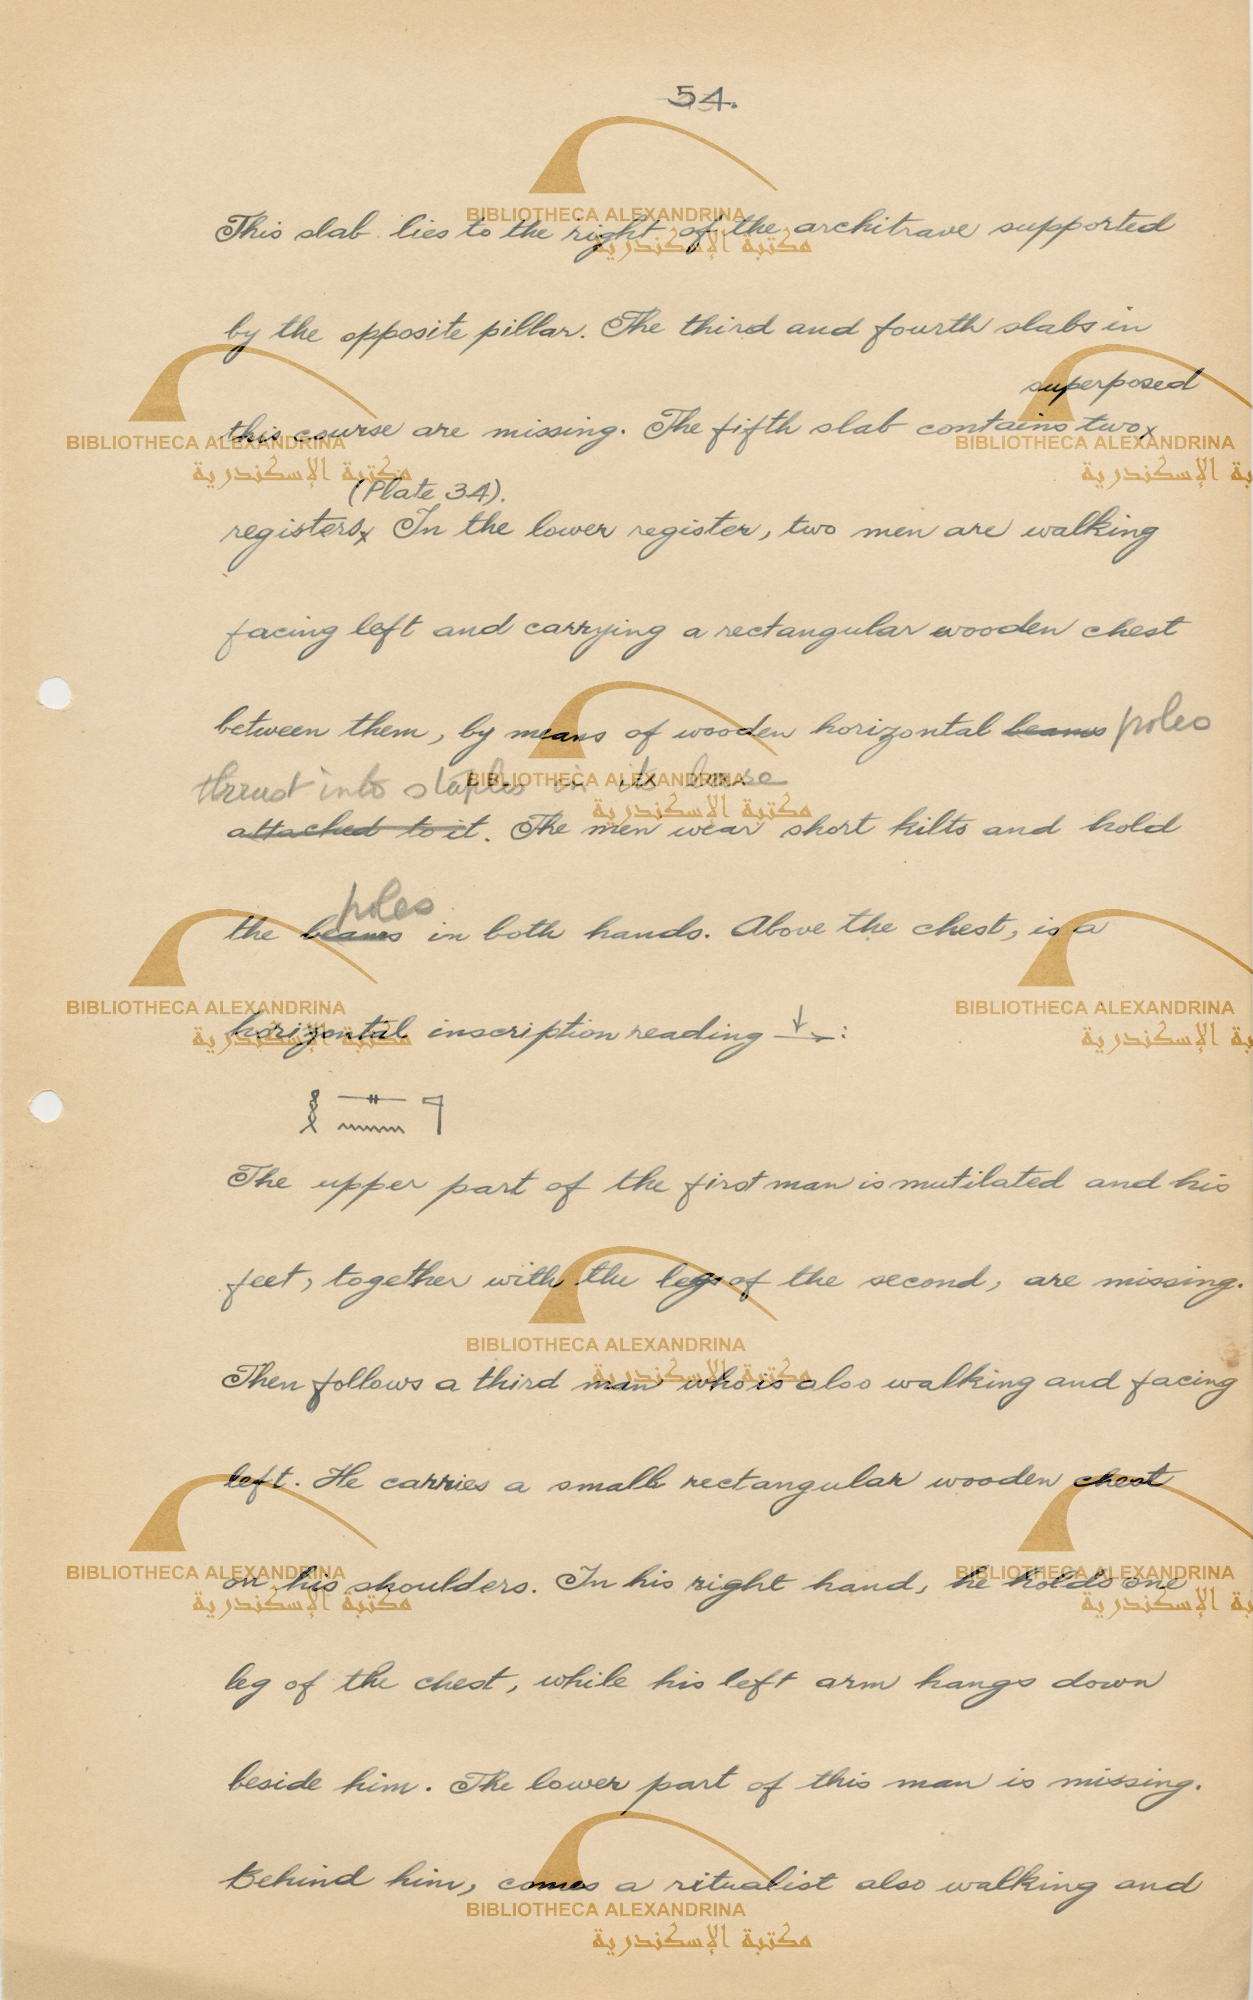 54.
This slab lies to the right of the architrave supported
by the opposite pillar. The third and fourth slabs in
superposed
this course are missing. The fifth slab contains two x
(Plate 34).
registers x In the lower register, two men are walking
facing left and carrying a rectangular wooden chest
between them, by means of wooden horizontal beams poles
thrust into staples in its base
attached to it. The men wear short kilts and hold
poles
the beams in both hands. Above the chest, is a
horizontal inscription reading ↓→:
𓎛𓊃𓈖𓊹
The upper part of the first man is mutilated and his
feet, together with the legs of the second, are missing.
Then follows a third man who is also walking and facing
left. He carries a small rectangular wooden chest
on his shoulders. In his right hand, he holds one
leg of the chest, while his left arm hangs down
beside him. The lower part of this man is missing.
Behind him, comes a ritualist also walking and
BIBLIOTHECA ALEXANDRINA
مكتبة الإسكندرية